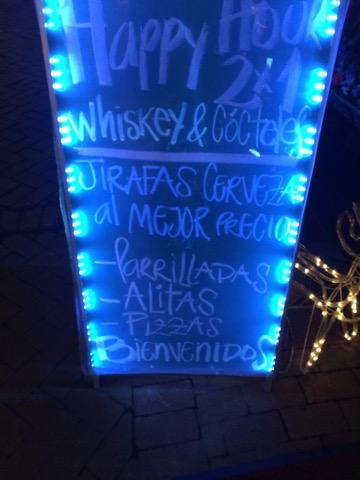 Happy Hour
2x1
Whiskey & Cócteles
JIRAFAS CERVEZA
al MEJOR PRECIO
-Parrilladas
-ALITAS
-PIZZAS
BIENVENIDOS